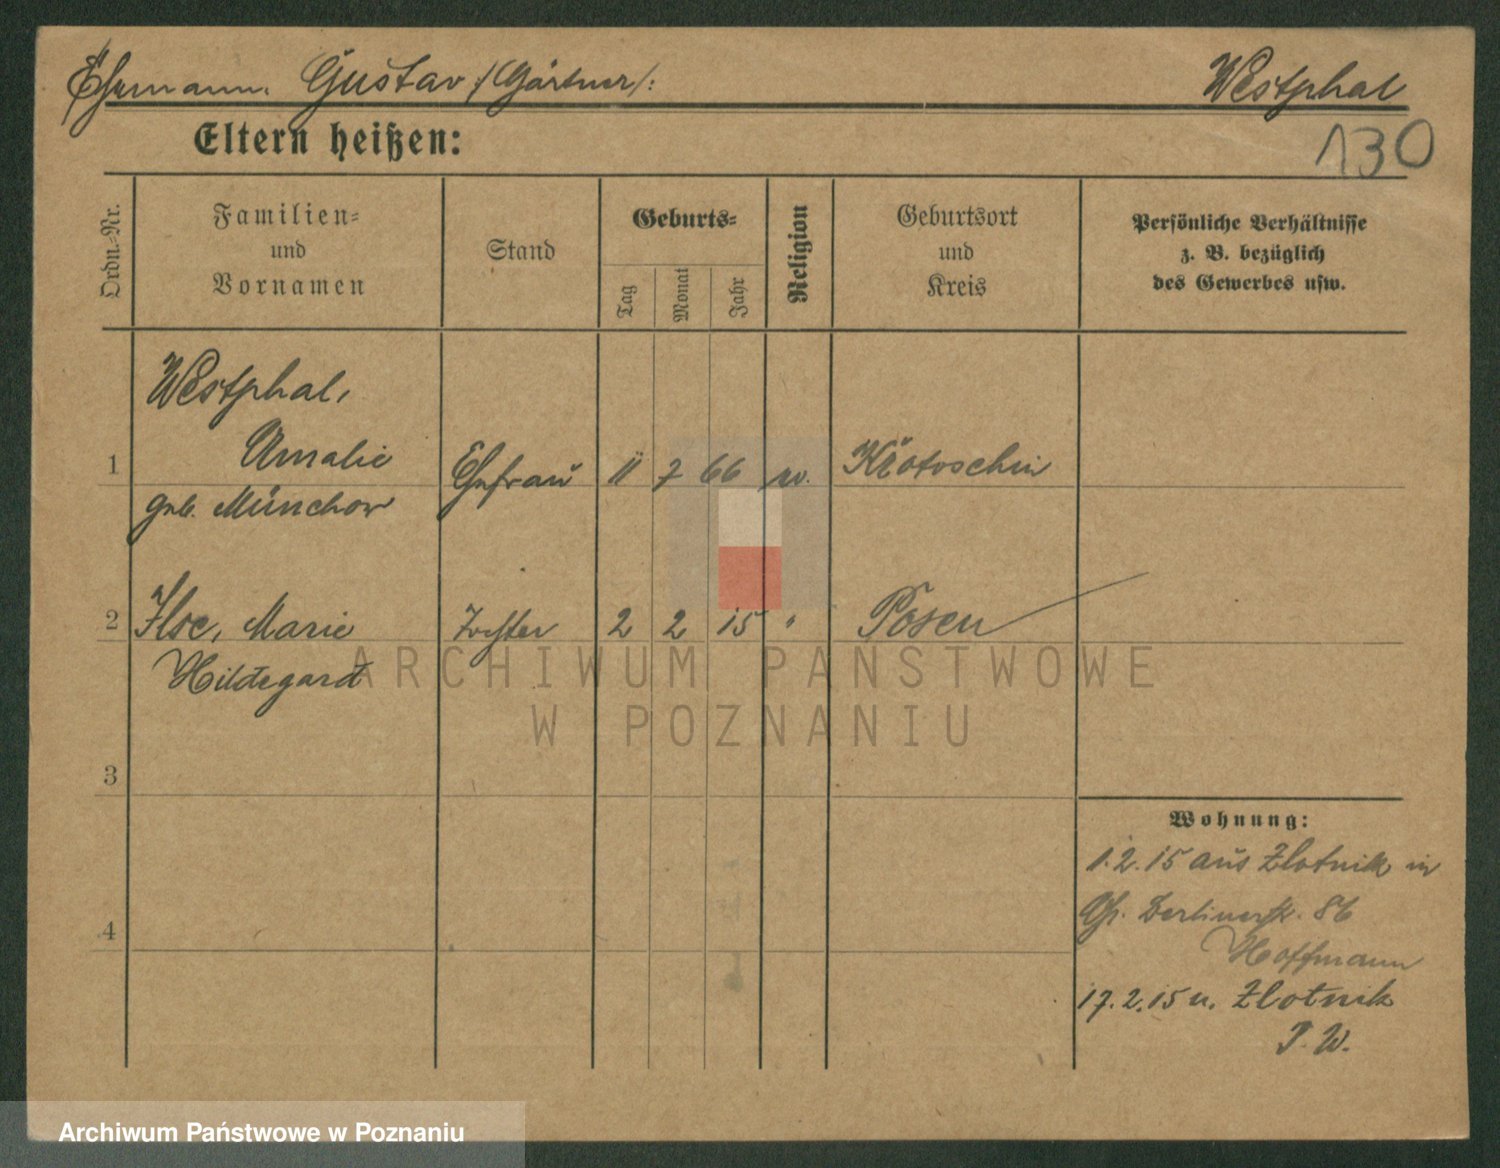 Ehemann. Gustav /:Gärtner/: Westphal
Eltern heißen: 130
Ordn.=Nr.
Familien=
und
Vornamen
Stand
Geburts=
Tag
Monat
Jahr
Religion
Geburtsort
und
Kreis
Persönliche Verhältnisse
z. B. bezüglich
des Gewerbes usw.
Westphal,
1 Amalie Ehefrau 11 7 66 ev. Krotoschin
geb. Münchow
2 Ilse, Marie Tochter 2 2 15 " Posen
Hildegard
3
4
Wohnung:
1.2.15 aus Zlotnik in
Gr. Berlinerstr. 86
Hoffmann
17.2.15 n. Zlotnik
P. W.
ARCHIWUM PAŃSTWOWE
W POZNANIU
Archiwum Państwowe w Poznaniu